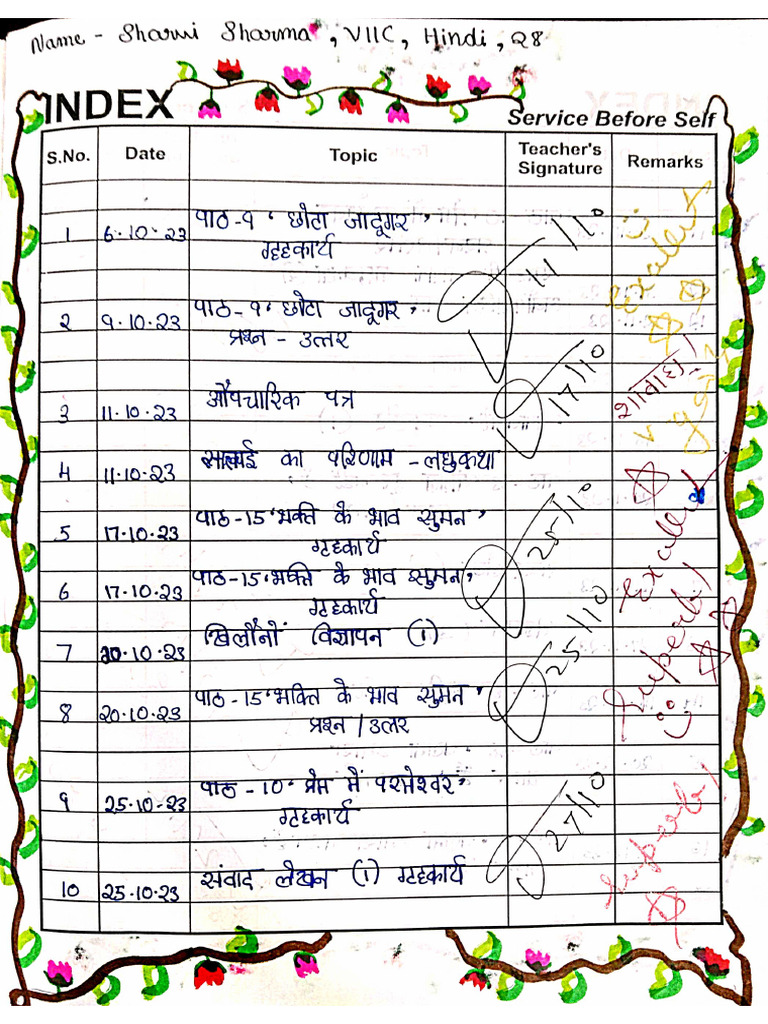 Name - Sharvi Sharma, VIIC, Hindi, 28
INDEX
Service Before Self
S.No. Date Topic Teacher's Signature Remarks
1 6.10.23 पाठ-९ 'छोटा जादूगर' 11/10
गृहकार्य Excellent
2 9.10.23 पाठ-९ 'छोटा जादूगर'
प्रश्न - उत्तर
3 11.10.23 औपचारिक पत्र 17/10 शाबाश! v.good
4 11.10.23 का परिणाम - लघुकथा
5 17.10.23 पाठ-15 'भक्ति के भाव सुमन' 25/10 Excellent
गृहकार्य
6 17.10.23 पाठ-15 'भक्ति के भाव सुमन'
गृहकार्य
7 20.10.23 खिलौनों विज्ञापन (1) 25/10 Superb!
8 20.10.23 पाठ-15 'भक्ति के भाव सुमन'
प्रश्न / उत्तर
9 25.10.23 पाठ - 10 'प्रेम में परमेश्वर' 27/10 Superb!
गृहकार्य
10 25.10.23 संवाद लेखन (1) गृहकार्य